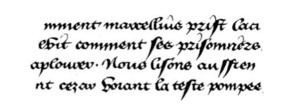 mment marcellius prist la ci
ehit comment ses prisonniers
a plourer. Nous lisons aussi en
nt cezar voiant la teste pompee